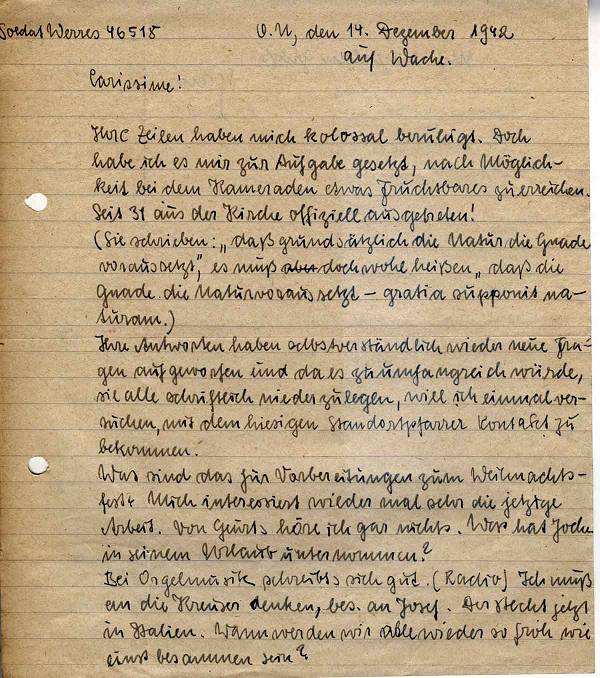 Soldat Werres 46518 O.U, den 14. Dezember 1942
auf Wache.
Carissime!
Ihre Zeilen haben mich kolossal beruhigt. Doch
habe ich es mir zur Aufgabe gesetzt, nach Möglich-
keit bei dem Kameraden etwas Fruchtbares zu erreichen.
Seit 31 aus der Kirche offiziell ausgetreten!
(Sie schrieben: „daß grundsätzlich die Natur die Gnade
voraussetzt", es muß aber doch wohl heißen „daß die
Gnade die Natur voraussetzt – gratia supponit na-
turam.)
Ihre Antworten haben selbstverständlich wieder neue Fra-
gen aufgeworfen und da es zu umfangreich würde,
sie alle schriftlich niederzulegen, will ich einmal ver-
suchen, mit dem hiesigen Standortpfarrer Kontakt zu
bekommen.
Was sind das für Vorbereitungen zum Weihnachts-
fest? Mich interessiert wieder mal sehr die jetzige
Arbeit. Von Geurts höre ich gar nichts. Was hat Joche
in seinem Urlaub unternommen?
Bei Orgelmusik schreibts sich gut. (Radio) Ich muß
an die Kreuser denken, bes. an Josef. Der steckt jetzt
in Italien. Wann werden wir alle wieder so froh wie
einst besammen sein?